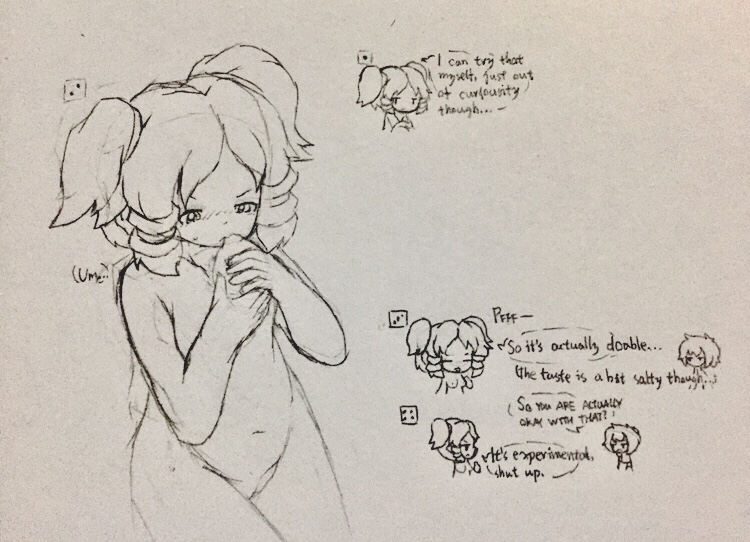 I can try that
myself, just out
of curiousity
though...
(Umz..)
PFFF—
So it's actually doable...
The taste is a bit salty though...
(So you ARE ACTUALLY
OKAY WITH THAT?)
It's experimental,
shut up.